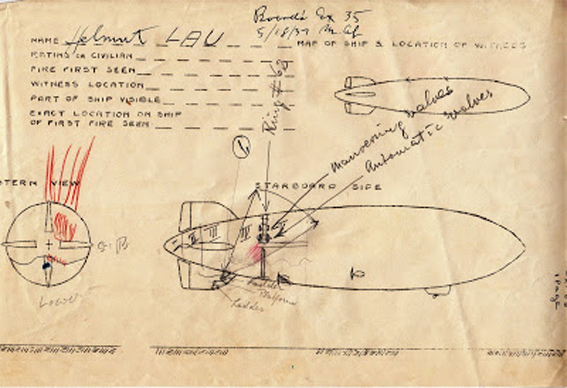 Board's Ex 35
5/18/37
NAME Helmut LAU
MAP OF SHIP & LOCATION OF WITNESS
RATING OR CIVILIAN
FIRE FIRST SEEN
WITNESS LOCATION
PART OF SHIP VISIBLE
EXACT LOCATION ON SHIP
OF FIRST FIRE SEEN
Ring #62
Manoevring valves
Automatic valves
1
STERN VIEW
STARBOARD SIDE
I II III IV
Lower
Ladder
Platform
Ladder